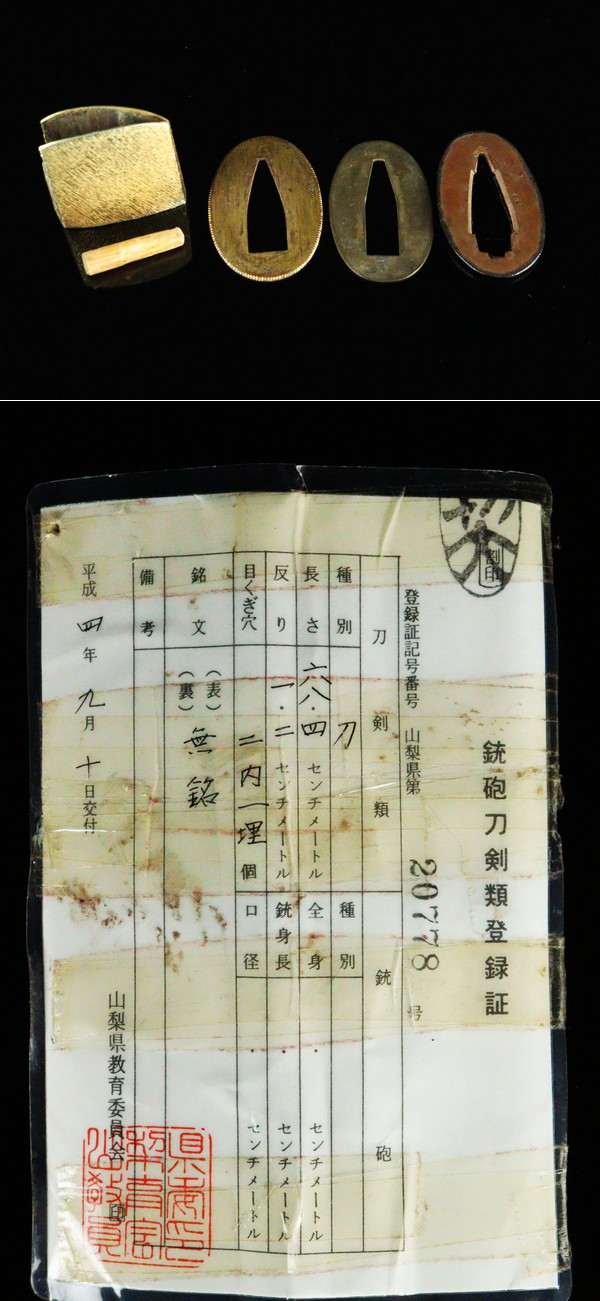 割印
銃砲刀剣類登録証
登録証記号番号 山梨県第 20778 号
刀剣類
銃砲
種別 刀
長さ 六八.四 センチメートル
反り 一.二 センチメートル
目くぎ穴 二内一埋 個
銘文 (表) (裏) 無銘
備考
種別
全身 . センチメートル
銃身長 . センチメートル
口径 . センチメートル
平成四年九月十日交付
山梨県教育委員会 印